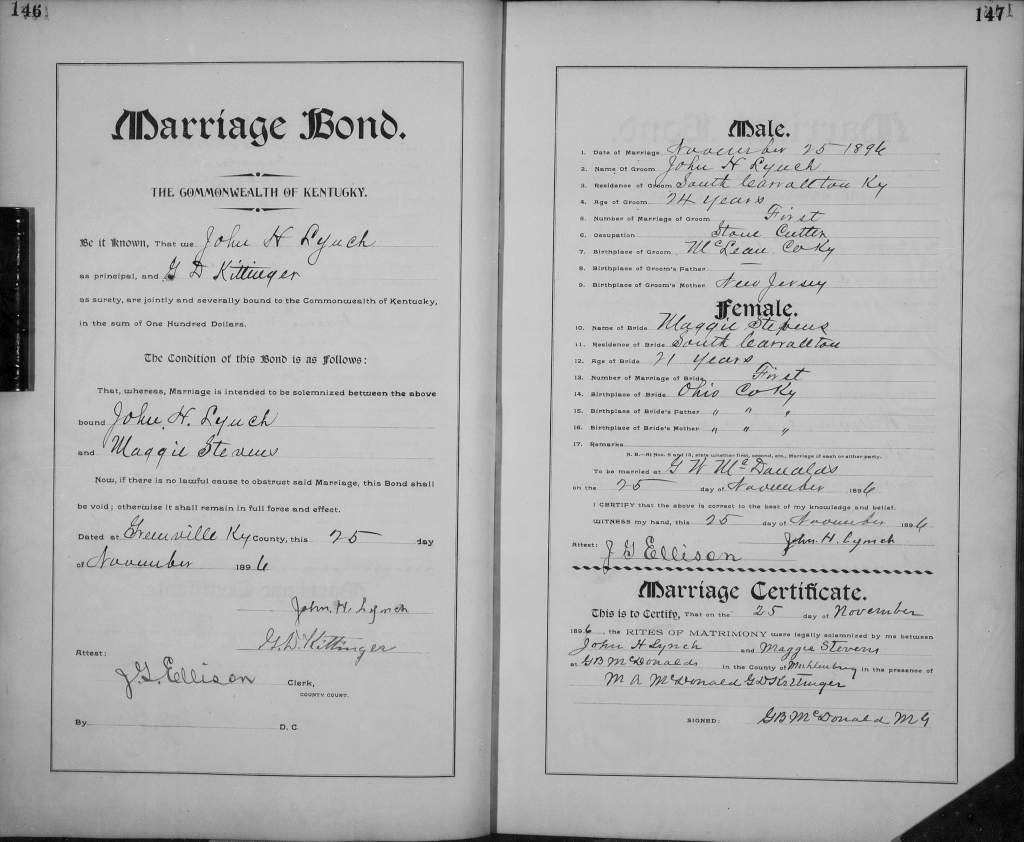 146
Marriage Bond.
THE COMMONWEALTH OF KENTUCKY.
Be it Known, That we John H Lynch
as principal, and G D Kittinger
as surety, are jointly and severally bound to the Commonwealth of Kentucky,
in the sum of One Hundred Dollars.
The Condition of this Bond is as Follows:
That, whereas, Marriage is intended to be solemnized between the above
bound John H. Lynch
and Maggie Stevens
Now, if there is no lawful cause to obstruct said Marriage, this Bond shall
be void; otherwise it shall remain in full force and effect.
Dated at Greenville Ky County, this 25 day
of November 1896
John H. Lynch
G.D. Kittinger
Attest:
J.G. Ellison Clerk,
COUNTY COURT.
By D. C.
147
Male.
1. Date of Marriage November 25 1896
2. Name Of Groom John H Lynch
3. Residence of Groom South Carrallton Ky
4. Age of Groom 24 years
5. Number of Marriage of Groom First
6. Occupation Stone Cutter
7. Birthplace of Groom McLean Co Ky
8. Birthplace of Groom's Father —
9. Birthplace of Groom's Mother New Jersey
Female.
10. Name of Bride Maggie Stevens
11. Residence of Bride South Carrallton
12. Age of Bride 21 years
13. Number of Marriage of Bride First
14. Birthplace of Bride Ohio Co Ky
15. Birthplace of Bride's Father " " "
16. Birthplace of Bride's Mother " " "
17. Remarks
N. B.—At Nos. 5 and 13, state whether first, second, etc., Marriage of each or either party.
To be married at G W McDonalds
on the 25 day of November 1896
I CERTIFY that the above is correct to the best of my knowledge and belief.
WITNESS my hand, this 25 day of November 1896
John. H. Lynch
Attest: J G Ellison
Marriage Certificate.
This is to Certify, That on the 25 day of November
1896, the RITES OF MATRIMONY were legally solemnized by me between
John H Lynch and Maggie Stevens
at GB McDonalds in the County of Muhlenburg in the presence of
M A McDonald GD Kittinger
SIGNED: GB McDonald M G